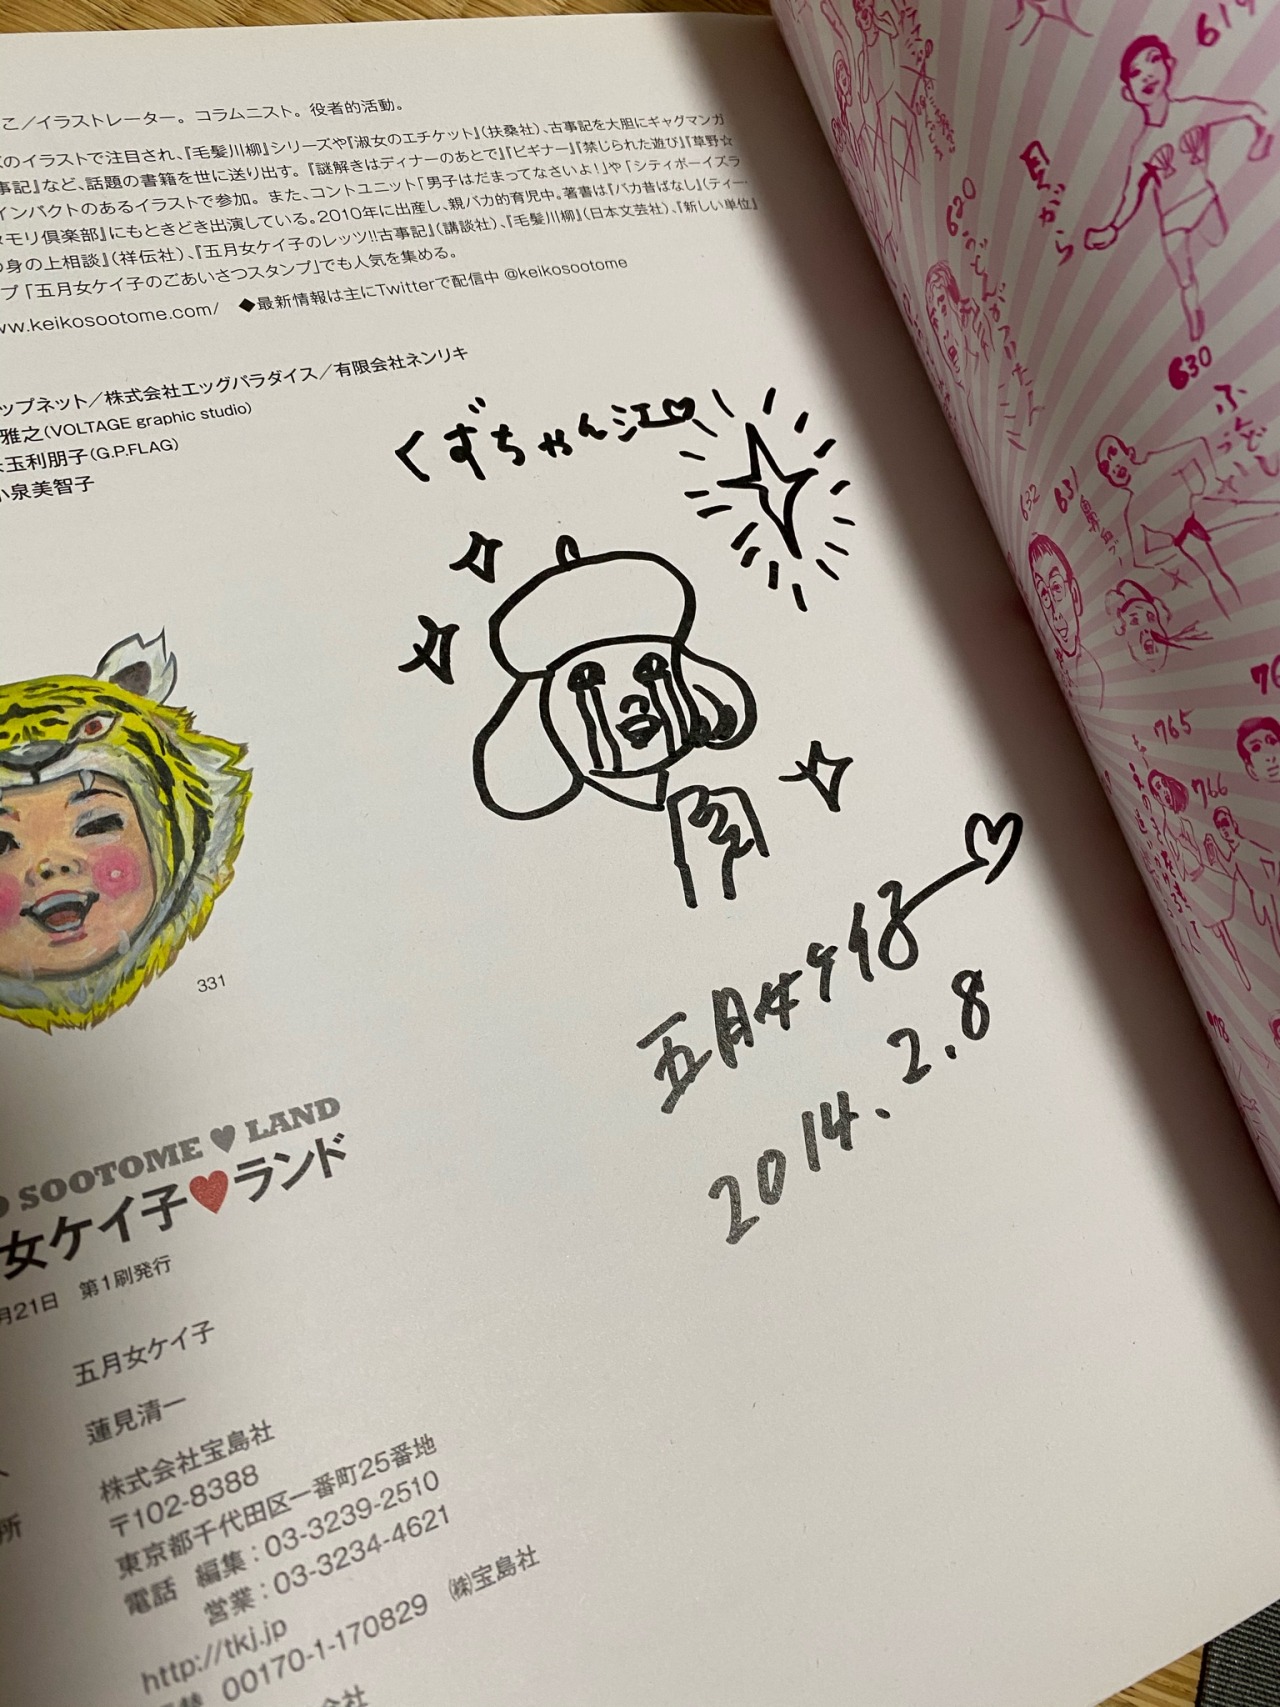 こ／イラストレーター。コラムニスト。役者的活動。
のイラストで注目され、『毛髪川柳』シリーズや『淑女のエチケット』(扶桑社)、古事記を大胆にギャグマンガ
事記』など、話題の書籍を世に送り出す。『謎解きはディナーのあとで』『ビギナー』『禁じられた遊び』『草野☆
インパクトのあるイラストで参加。また、コントユニット「男子はだまってなさいよ！」や「シティボーイズラ
タモリ倶楽部』にもときどき出演している。2010年に出産し、親バカ的育児中。著書は『バカ昔ばなし』(ティー・
の身の上相談』(祥伝社)、『五月女ケイ子のレッツ!!古事記』(講談社)、『毛髪川柳』(日本文芸社)、『新しい単位』
プ「五月女ケイ子のごあいさつスタンプ」でも人気を集める。
ww.keikosootome.com/ ◆最新情報は主にTwitterで配信中 @keikosootome
ップネット／株式会社エッグパラダイス／有限会社ネンリキ
雅之(VOLTAGE graphic studio)
玉利朋子(G.P.FLAG)
小泉美智子
くずちゃん江♡
五月女ケイ子♡
2014.2.8
331
SOOTOME ♥ LAND
女ケイ子♥ランド
月21日 第1刷発行
五月女ケイ子
蓮見清一
株式会社宝島社
〒102-8388
東京都千代田区一番町25番地
電話 編集：03-3239-2510
営業：03-3234-4621
http://tkj.jp
00170-1-170829 ㈱宝島社
619
目ぢから
620
630
ふんどし
631
632
765
766